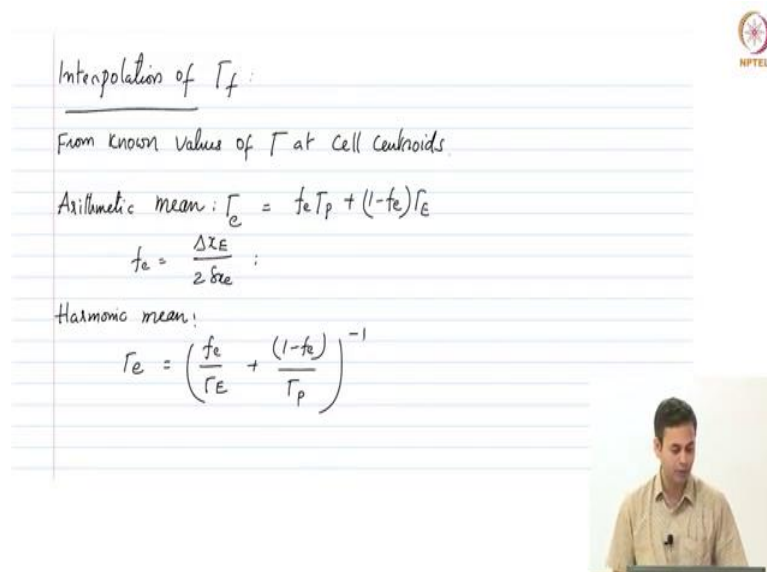 NPTEL
Interpolation of Γf :
From known values of Γ at cell centroids.
Arithmetic mean : Γe = fe Γp + (1-fe) ΓE
fe = ΔxE / 2 δxe ;
Harmonic mean :
Γe = ( fe / ΓE + (1-fe) / Γp )^-1